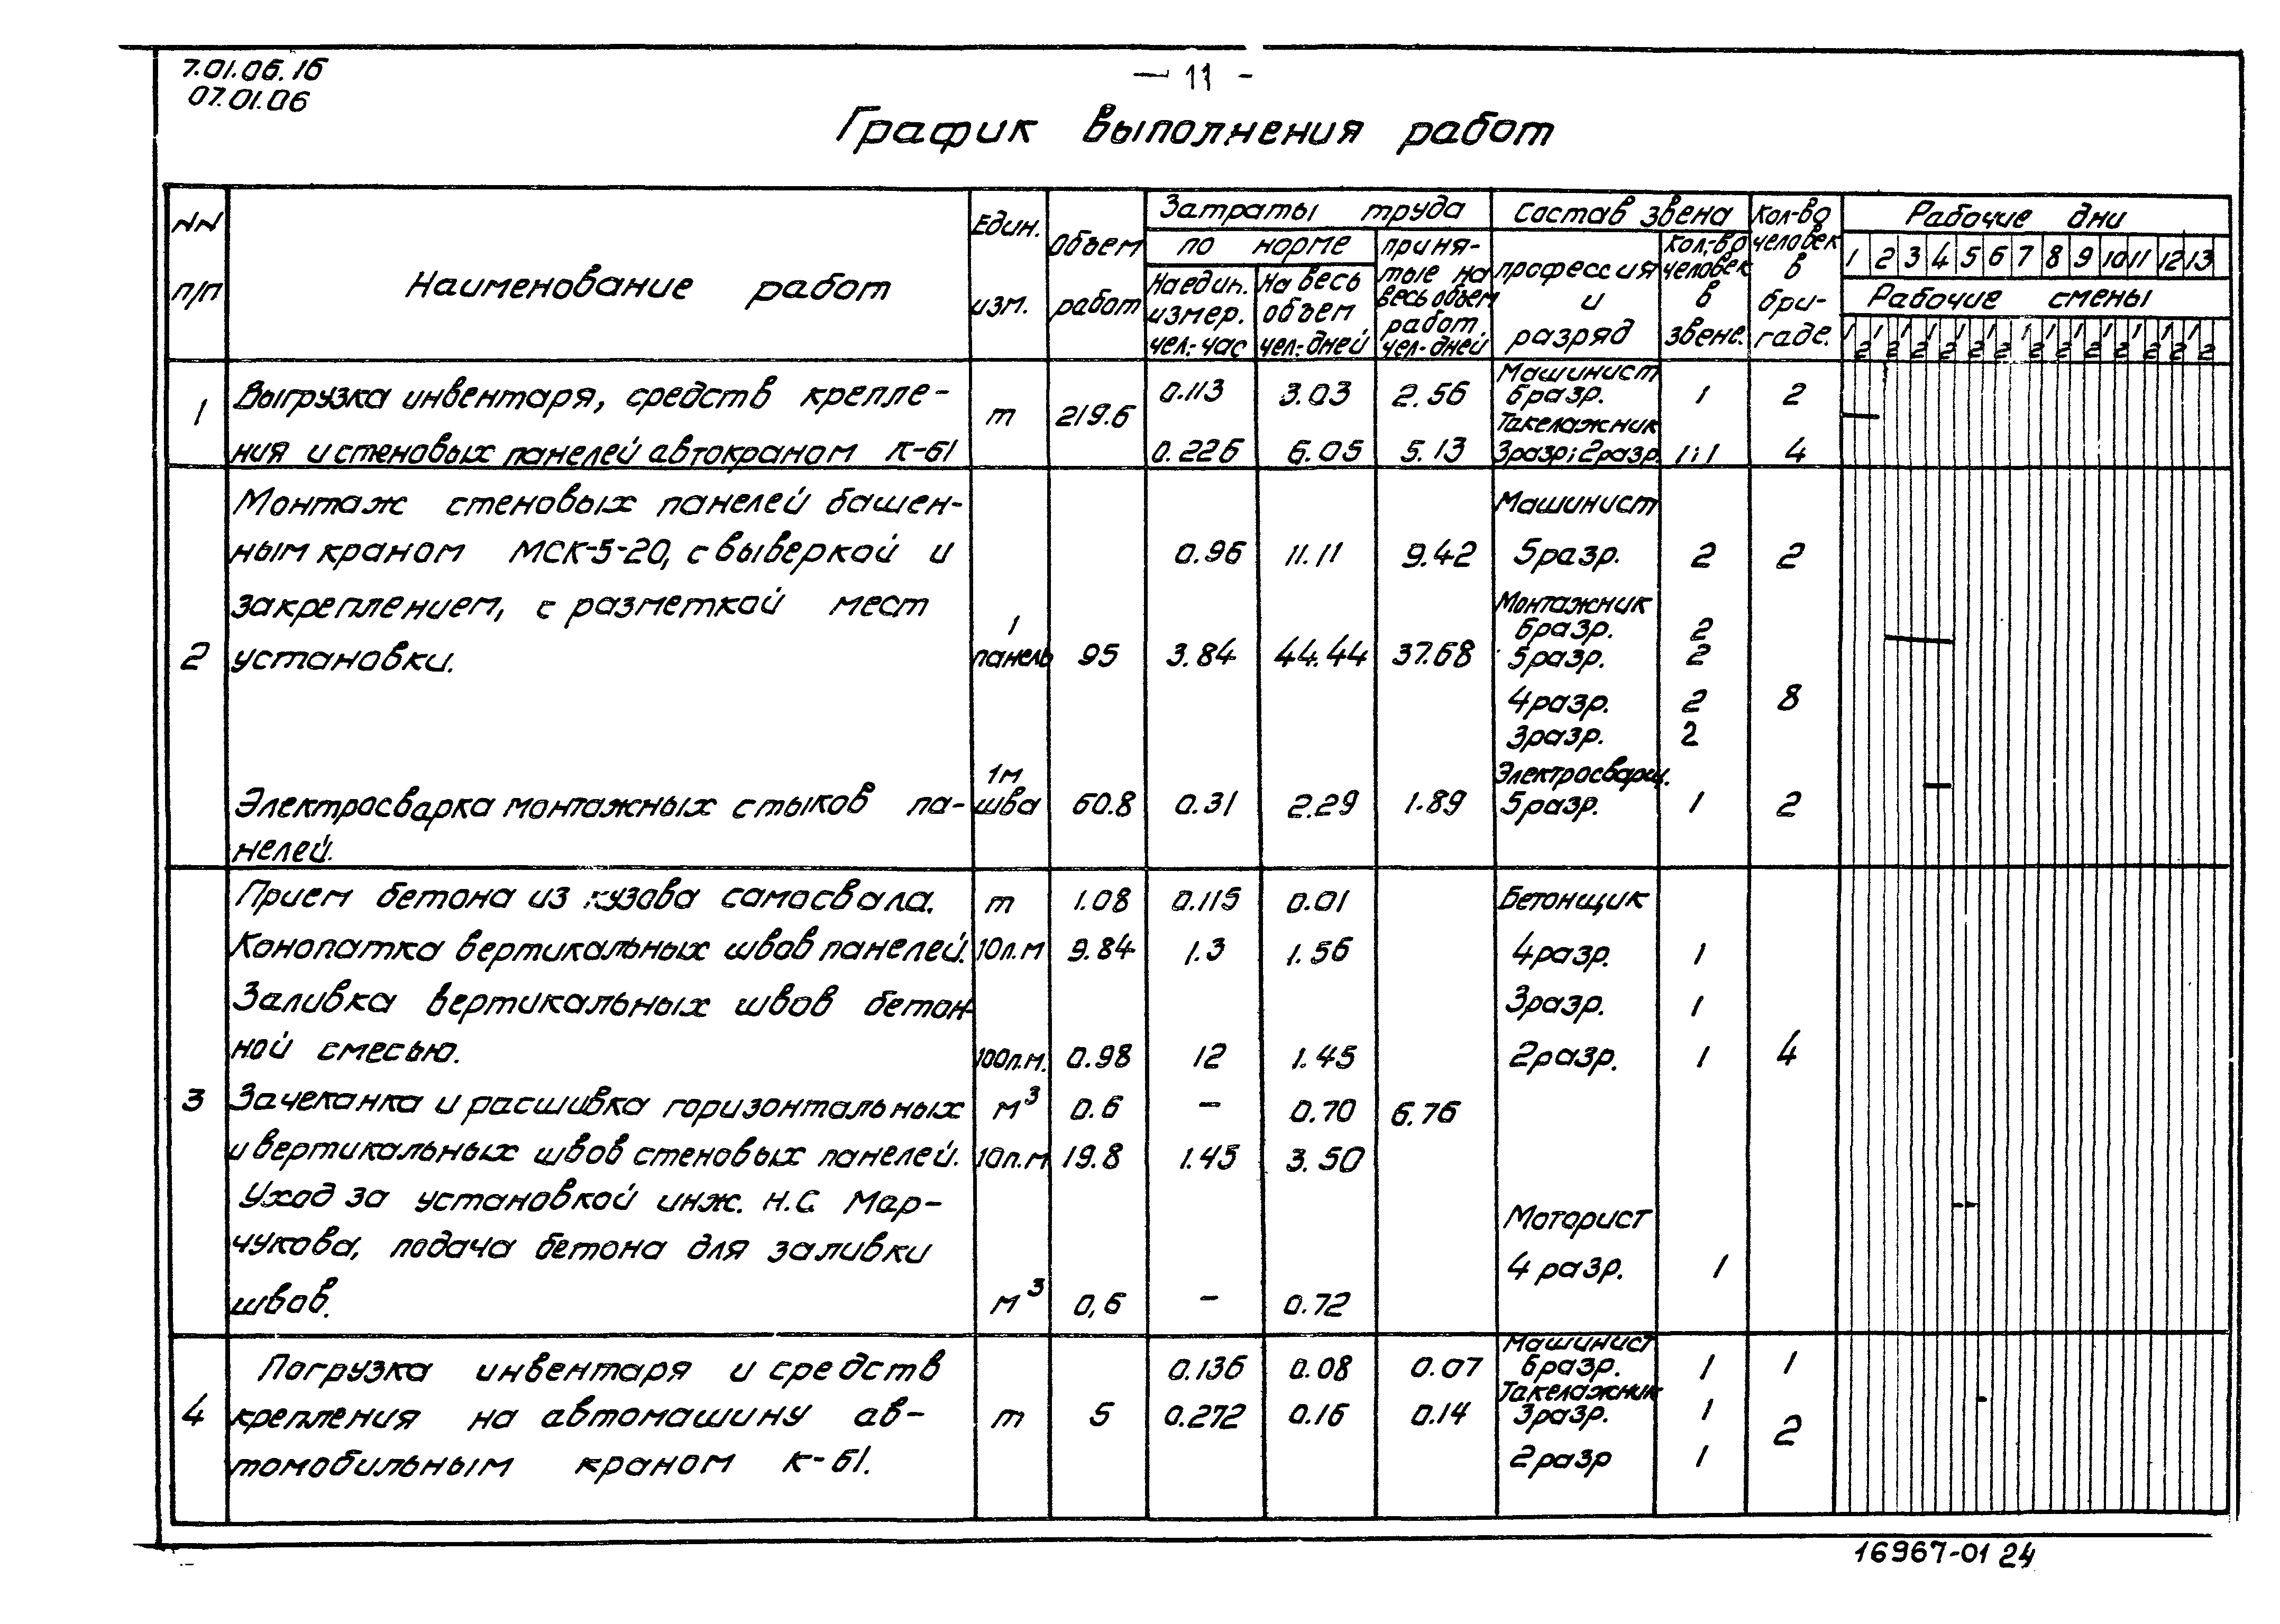 7.01.06.16
07.01.06
— 11 -
График выполнения работ
NN
п/п
Наименование работ
Един.
изм.
Объем
работ
Затраты труда
по норме
На един.
измер.
чел.-час
На весь
объем
чел.-дней
приня-
тые на
весь объем
работ.
чел-дней
Состав звена
профессия
и
разряд
Кол-во
человек
в
звене.
Кол-во
человек
в
бри-
гаде.
Рабочие дни
1 2 3 4 5 6 7 8 9 10 11 12 13
Рабочие смены
1 2 1 2 1 2 1 2 1 2 1 2 1 2 1 2 1 2 1 2 1 2 1 2 1 2
1
Выгрузка инвентаря, средств крепле-
ния и стеновых панелей автокраном К-61
т
219.6
0.113 3.03 2.56
0.226 6.05 5.13
Машинист
6разр.
1 2
Такелажник
3разр; 2разр. 1; 1 4
2
Монтаж стеновых панелей башен-
ным краном МСК-5-20, с выверкой и
закреплением, с разметкой мест
установки.
1
панель
95
0.96 11.11 9.42
3.84 44.44 37.68
Машинист
5разр. 2 2
Монтажник
6разр. 2
5разр. 2
4разр. 2 8
3разр. 2
Электросварка монтажных стыков па-
нелей.
1м
шва
60.8 0.31 2.29 1.89
Электросварщ.
5разр. 1 2
3
Прием бетона из кузова самосвала. т 1.08 0.115 0.01
Конопатка вертикальных швов панелей. 10п.м 9.84 1.3 1.56
Заливка вертикальных швов бетон-
ной смесью. 100п.м. 0.98 12 1.45
Зачеканка и расшивка горизонтальных м3 0.6 – 0.70 6.76
и вертикальных швов стеновых панелей. 10п.м 19.8 1.45 3.50
Уход за установкой инж. Н.С. Мар-
чукова, подача бетона для заливки
швов. м3 0,6 – 0.72
Бетонщик
4разр. 1
3разр. 1
2разр. 1 4
Моторист
4 разр. 1
4
Погрузка инвентаря и средств
крепления на автомашину ав-
томобильным краном К-61.
т
5
0.136 0.08 0.07
0.272 0.16 0.14
Машинист
6разр. 1 1
Такелажник
3разр. 1
2
2разр 1
16967-01 24